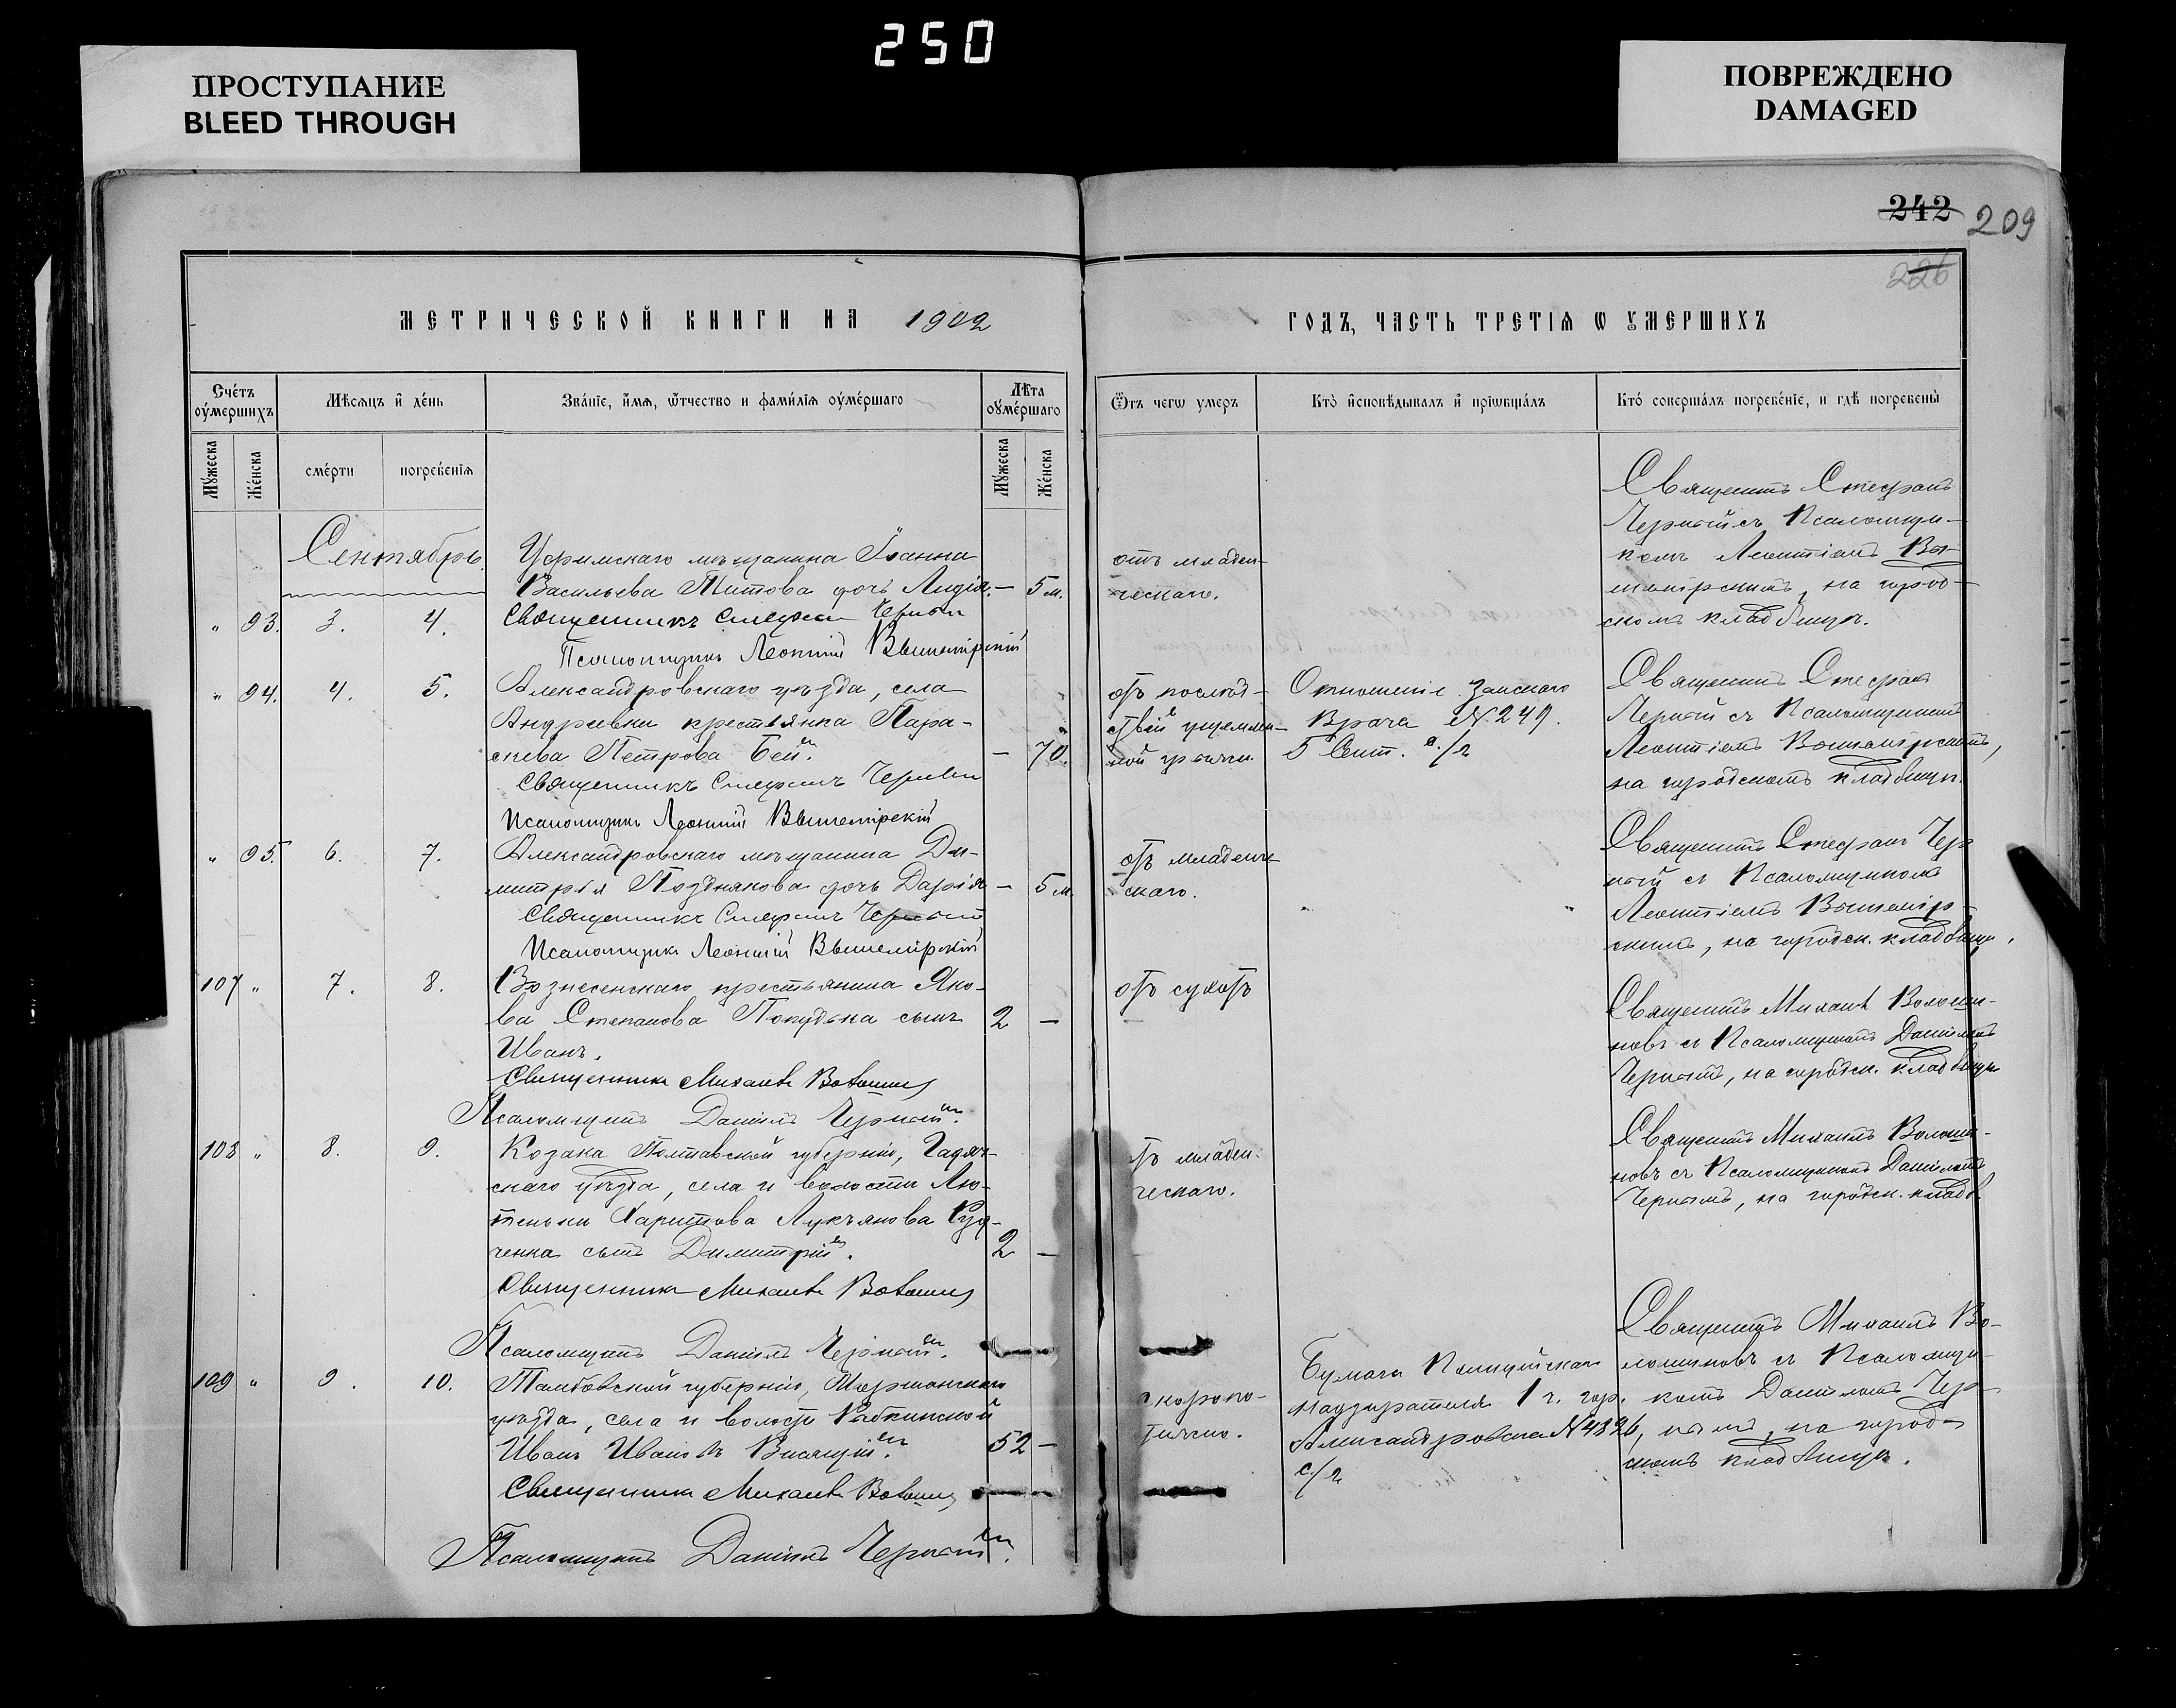 250
ПРОСТУПАНИЕ
BLEED THROUGH
ПОВРЕЖДЕНО
DAMAGED
242 209
226
МЕТРИЧЕСКОЙ КНИГИ НА 1902
ГОДЪ, ЧАСТЬ ТРЕТІѦ Ѡ ОУМЕРШИХЪ
Счетъ оумершихъ
Мѣсѧцъ и день
Званіе, имѧ, отчество и фамиліѧ оумершаго
Лѣта оумершаго
Ѿъ чегѡ умеръ
Кто исповѣдывалъ и пріѡбщалъ
Кто совершалъ погребеніе, и гдѣ погребены
Мужеска
Женска
смерти
погребеніѧ
Мужеска
Женска
Сентябрь.
" 93. 3. 4.
Мѣщанина Іоанна
Васильева Титова дочь Лидія. — 5 м.
Священникъ Стефанъ Черный
Псаломщикъ Леонтій Вышемірскій
отъ младен-
ческаго.
Священникъ Стефанъ
Черный съ Псаломщи-
комъ Леонтіемъ Вы-
шемірскимъ, на город-
скомъ кладбищѣ.
" 94. 4. 5.
Александровскаго уѣзда, села
Андреевки крестьянка Пара-
скева Петрова Бей. — 70.
Священникъ Стефанъ Черный
Псаломщикъ Леонтій Вышемірскій
отъ послѣд-
ствій ущемлен-
ной грыжи.
Отношеніе Земскаго
Врача № 249.
5 Сент. с./г.
Священникъ Стефанъ
Черный съ Псаломщикомъ
Леонтіемъ Вышемірскимъ,
на городскомъ кладбищѣ.
" 95. 6. 7.
Александровскаго мѣщанина Ди-
митрія Позднякова дочь Дарія — 5 м.
Священникъ Стефанъ Черный
Псаломщикъ Леонтій Вышемірскій
отъ младенче-
скаго.
Священникъ Стефанъ Чер
ный съ Псаломщикомъ
Леонтіемъ Вышемір-
скимъ, на городск. кладбищѣ.
107 " 7. 8.
Вознесенскаго крестьянина Яко-
ва Степанова сынъ 2 —
Иванъ.
Священникъ Михаилъ Волошиновъ
Псаломщикъ Даніилъ Черный.
отъ сухотъ
Священникъ Михаилъ Волоши-
новъ съ Псаломщикомъ Даніиломъ
Чернымъ, на городск. кладбищѣ
108 " 8. 9.
Козака Полтавской губерніи, Гадяч-
скаго уѣзда, села и волости Лю-
теньки Харитова Лукьянова Руд-
ченка сынъ Димитрій. 2 —
Священникъ Михаилъ Волошиновъ
Псаломщикъ Даніилъ Черный.
отъ младен-
ческаго.
Священникъ Михаилъ Волоши-
новъ съ Псаломщикомъ Даніиломъ
Чернымъ, на городск. кладб
109 " 9. 10.
Тамбовской губерніи, Моршанскаго
уѣзда, села и волости
Иванъ Ивановъ Висящій. 52 —
Священникъ Михаилъ Волошиновъ
Псаломщикъ Даніилъ Черный.
скоропо-
стижно.
Бумага Полицейскаго
надзирателя 1 ч. гор.
Александровска № 4826,
с./г.
Священникъ Михаилъ Во-
лошиновъ съ Псаломщи-
комъ Даніиломъ Чер-
нымъ, на город-
скомъ кладбищѣ.